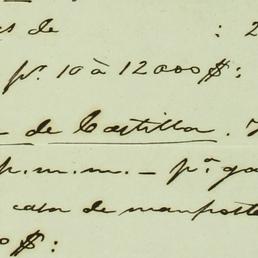 as de : 2
pr. 10 à 12000 $:
- de Castilla.
p.m.m. - pa ga
casa de mamposte
0 $: